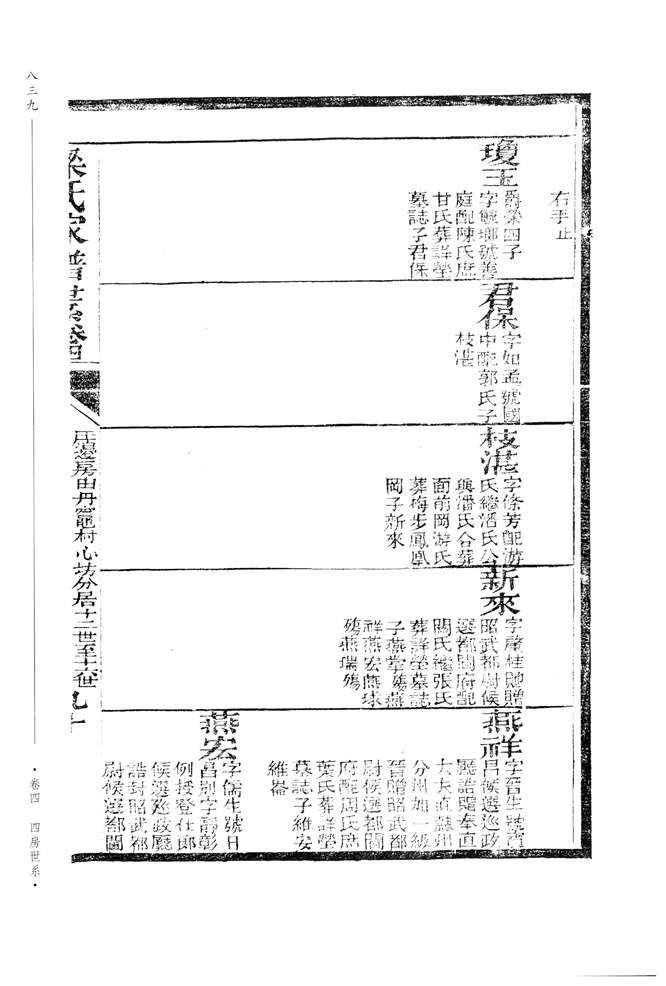 右手止
瓊玉
爵榮四子
字毓瑯號
庭配陳氏庶
甘氏葬詳塋
墓誌子君保
君保
字如孟號國
中配郭氏子
枝湛
枝湛
字條芳配游
氏繼潘氏公
與潘氏合葬
面前岡游氏
葬梅步鳳凰
岡子新來
新來
字桂貤贈
昭武都尉候
選都閫府配
關氏繼張氏
葬詳塋墓誌
子燕堂殤燕
祥燕宏燕球
殤燕瑞殤
燕祥
字晉生號
昌候選巡政
廳誥贈奉直
大夫直隸州
分州加一級
晉贈昭武都
尉候選都閫
府配周氏庶
葉氏葬詳塋
墓誌子維安
維崙
燕宏
字儒生號日
昌別字壽彰
例授登仕郎
候選巡政廳
誥封昭武都
尉候選都閫
梁氏家譜世系卷四
邊房由丹竈村心坊分居十二世至十六世
九十
八三九
·卷四 四房世系·